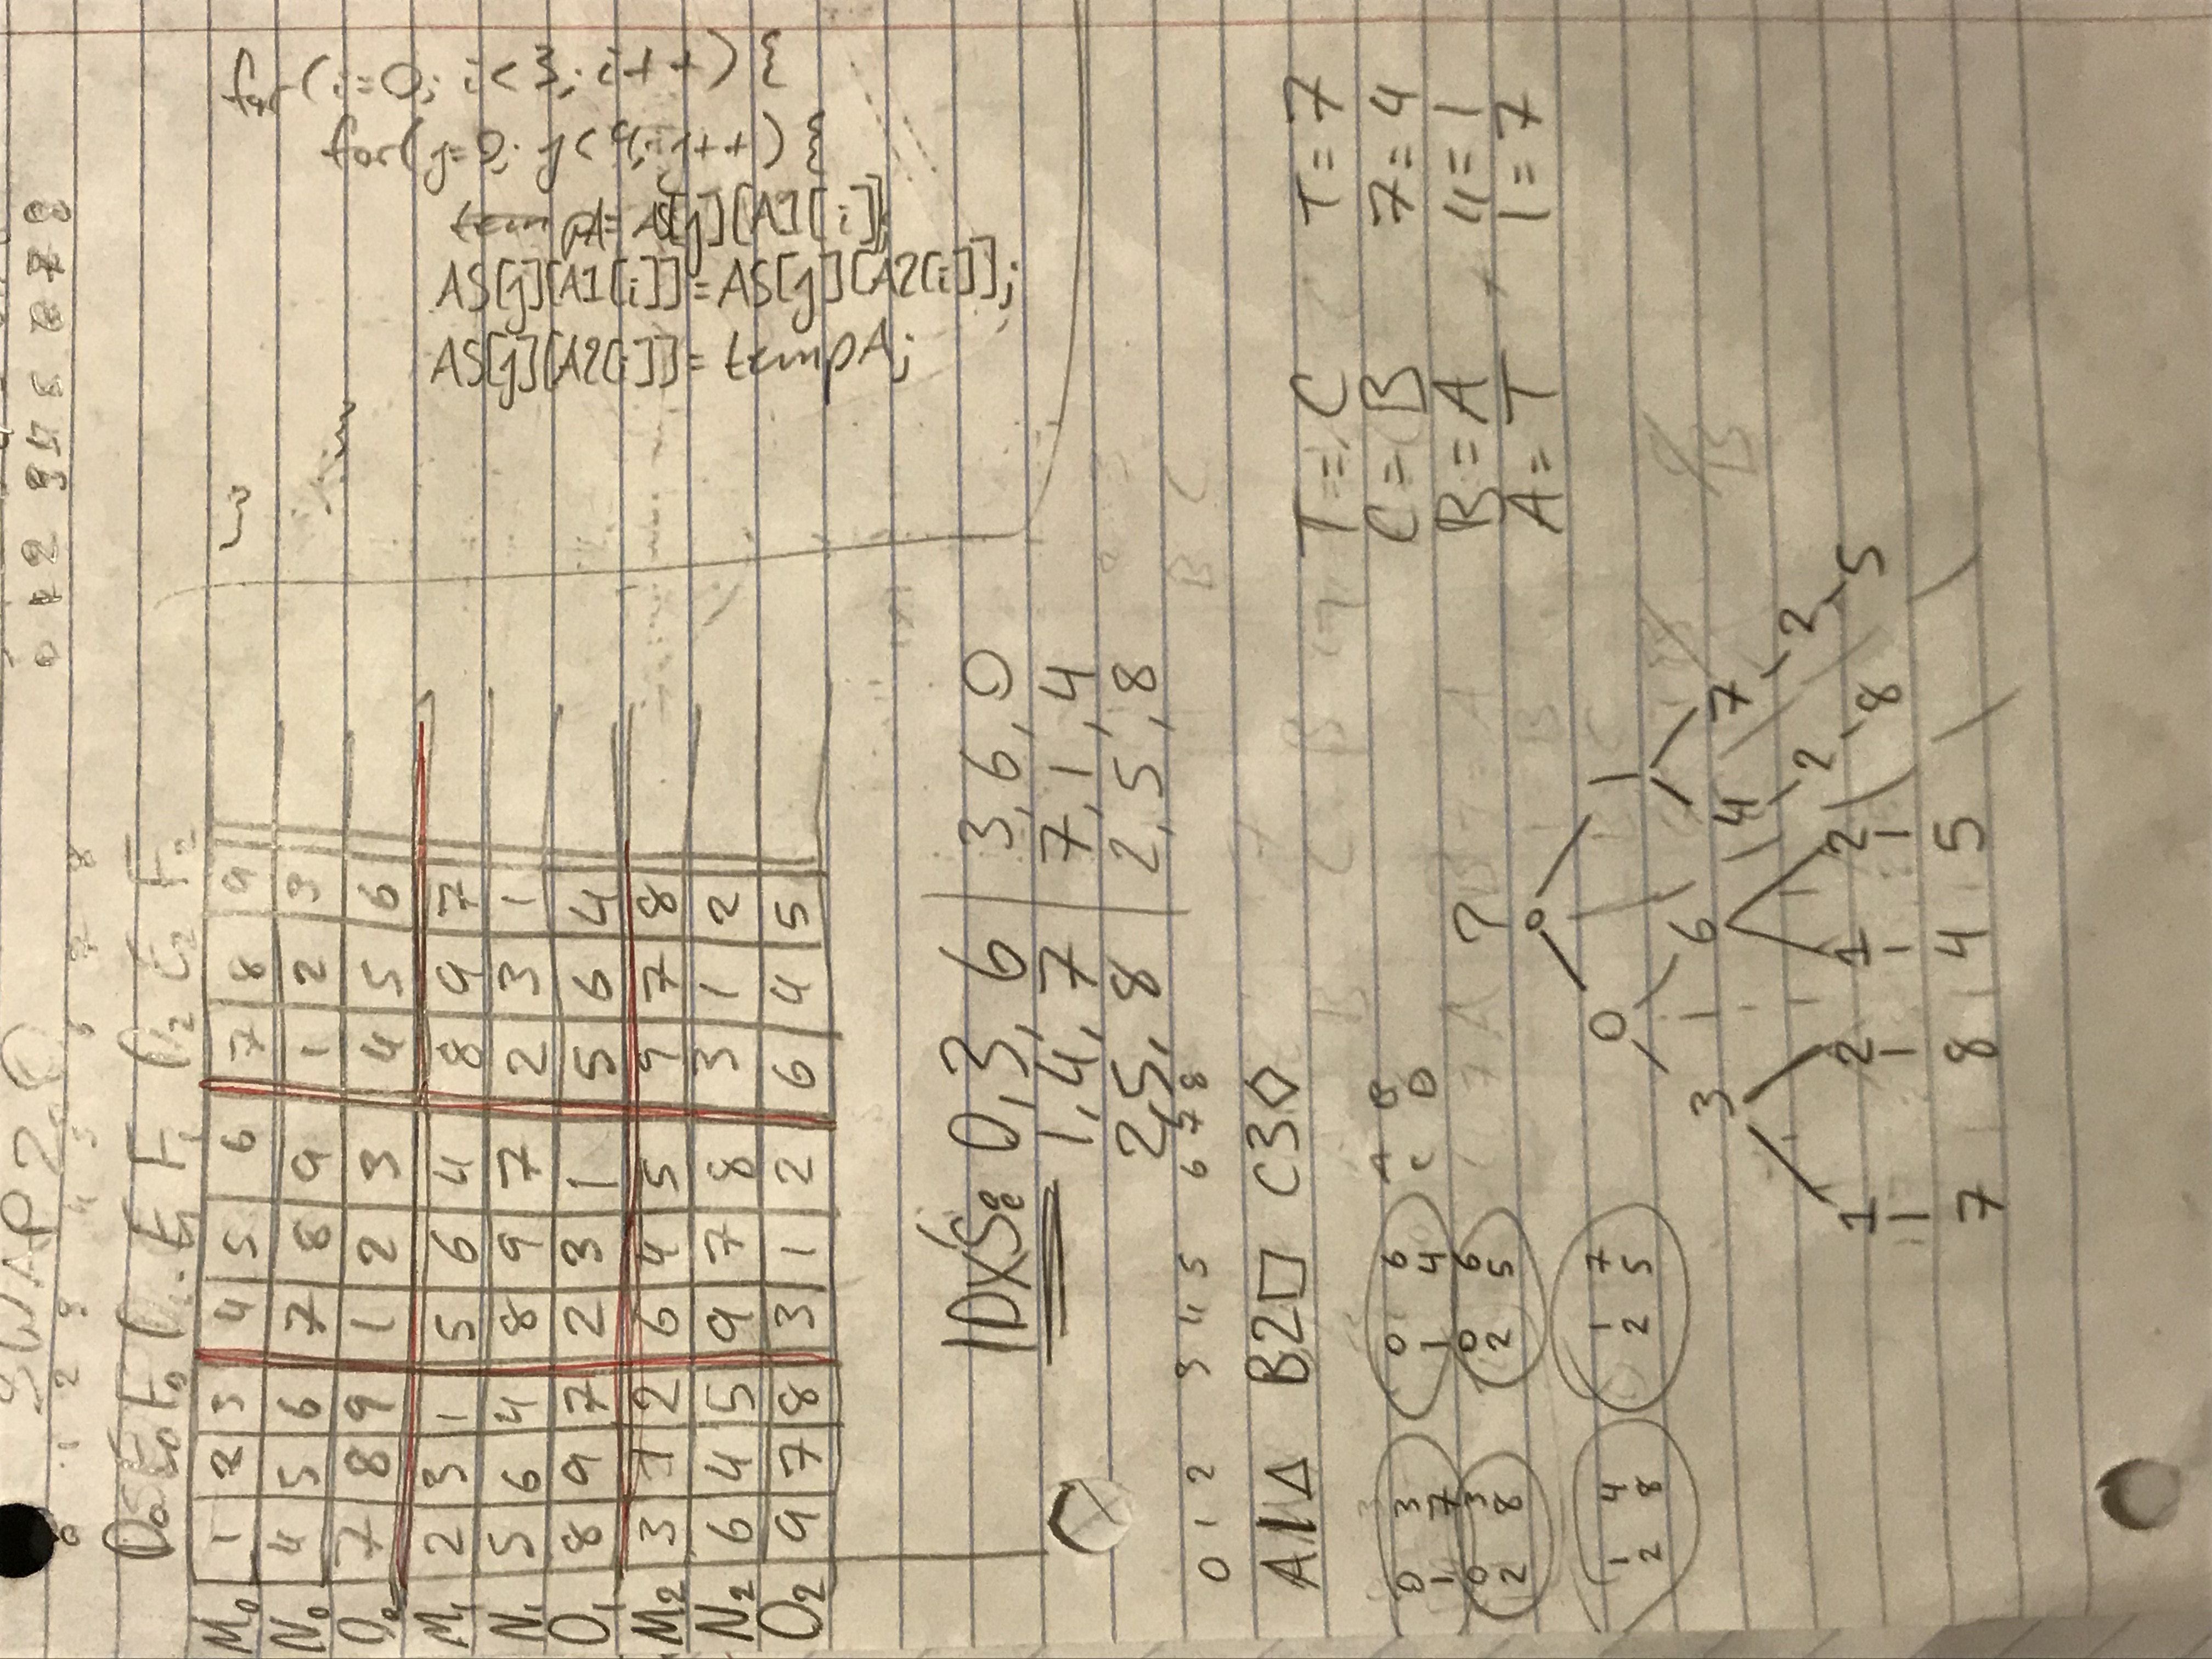 SWAP 2.0
0 1 2 3 4 5 6 7 8
0 1 2 3 4 5 6 7 8
D0 E0 F0 D1 E1 F1 D2 E2 F2
M0 1 2 3 4 5 6 7 8 9
N0 4 5 6 7 8 9 1 2 3
O0 7 8 9 1 2 3 4 5 6
M1 2 3 1 5 6 4 8 9 7
N1 5 6 4 8 9 7 2 3 1
O1 8 9 7 2 3 1 5 6 4
M2 3 1 2 6 4 5 9 7 8
N2 6 4 5 9 7 8 3 1 2
O2 9 7 8 3 1 2 6 4 5
for(i=0; i<3; i++){
for(j=0; j<9; j++){
tempA= AS[j][A1[i]];
AS[j][A1[i]]=AS[j][A2[i]];
AS[j][A2[i]]= tempA;
IDXS: 0, 3, 6 | 3, 6, 0
1, 4, 7 | 7, 1, 4
2, 5, 8 | 2, 5, 8
0 1 2 3 4 5 6 7 8
A1△ B2□ C3◇
0 3 0 6 A B
1 7 1 4 C D
0 3 0 6
2 8 2 5
1 4 1 7
2 8 2 5
T = C T = 7
C = B 7 = 4
B = A 4 = 1
A = T 1 = 7
?
0 1
3 6 4 7
2 2
1 2 1 2 8 5
7 8 4 5